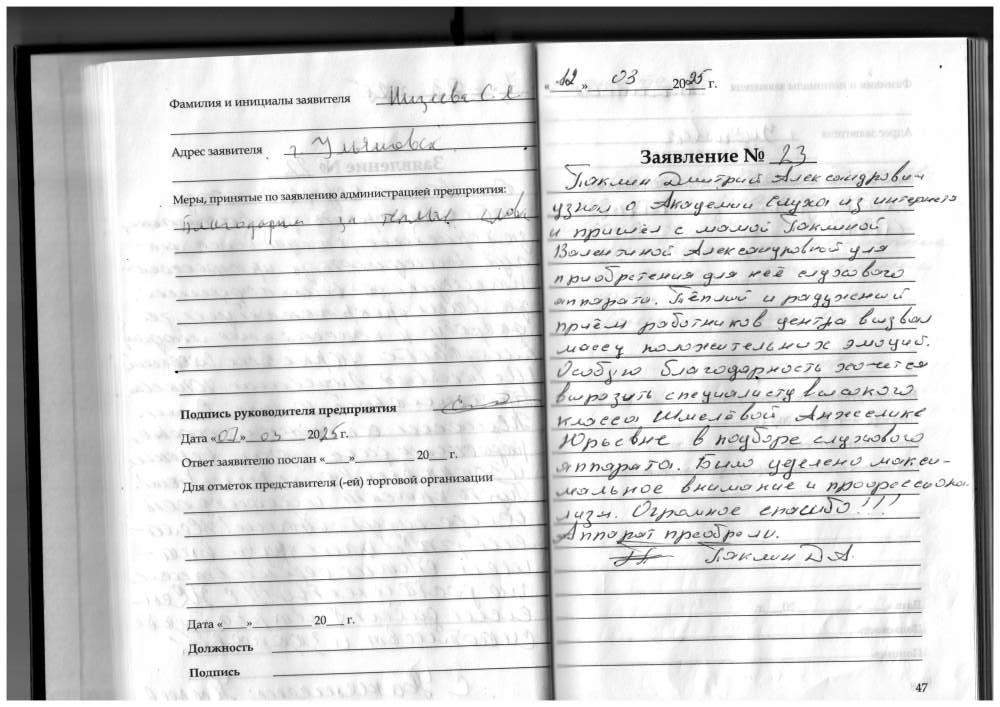 Фамилия и инициалы заявителя С. А.
Адрес заявителя г Ульяновск
Меры, принятые по заявлению администрацией предприятия:
Благодарим за теплые слова
Подпись руководителя предприятия
Дата «07» 03 2025 г.
Ответ заявителю послан «___»__________ 20___ г.
Для отметок представителя (-ей) торговой организации
Дата «___»__________ 20___ г.
Должность
Подпись
«12» 03 2025 г.
Заявление № 23
Паклин Дмитрий Александрович
узнал о Академии Слуха из интернета
и пришёл с мамой Паклиной
Валентиной Александровной для
приобретения для неё слухового
аппарата. Тёплый и радужный
приём работников центра вызвал
массу положительных эмоций.
Особую благодарность хочется
выразить специалисту высокого
класса Шмелёвой Анжелике
Юрьевне в подборе слухового
аппарата. Было уделено макси-
мальное внимание и профессиона
лизм. Огромное спасибо!!!
Аппарат преобрели.
Паклин Д.А.
47